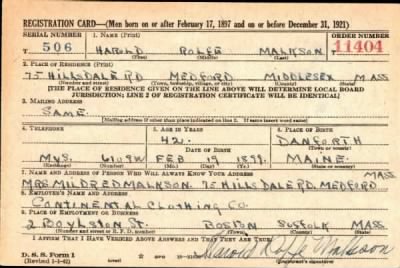 REGISTRATION CARD—(Men born on or after February 17, 1897 and on or before December 31, 1921)
SERIAL NUMBER 1. NAME (Print) ORDER NUMBER
T 506 HAROLD ROLFE MALKSON T 11404
(First) (Middle) (Last)
2. PLACE OF RESIDENCE (Print)
75 HILLSDALE RD MEDFORD MIDDLESEX MASS
(Number and street) (Town, township, village, or city) (County) (State)
[THE PLACE OF RESIDENCE GIVEN ON THE LINE ABOVE WILL DETERMINE LOCAL BOARD
JURISDICTION; LINE 2 OF REGISTRATION CERTIFICATE WILL BE IDENTICAL]
3. MAILING ADDRESS
SAME.
[Mailing address if other than place indicated on line 2. If same insert word same]
4. TELEPHONE 5. AGE IN YEARS 6. PLACE OF BIRTH
42. DANFORTH
DATE OF BIRTH (Town or county)
MYS. FEB 19 1899. MAINE.
(Exchange) (Number) (Mo.) (Day) (Yr.) (State or country)
7. NAME AND ADDRESS OF PERSON WHO WILL ALWAYS KNOW YOUR ADDRESS MASS
MRS MILDRED MALKSON. 75 HILLSDALE RD. MEDFORD
8. EMPLOYER'S NAME AND ADDRESS
CONTINENTAL CLOTHING CO.
9. PLACE OF EMPLOYMENT OR BUSINESS
2 BOYLSTON ST. BOSTON SUFFOLK MASS
(Number and street or R. F. D. number) (Town) (County) (State)
I AFFIRM THAT I HAVE VERIFIED ABOVE ANSWERS AND THAT THEY ARE TRUE.
D. S. S. Form 1 Harold Rolfe Malkson
(Revised 1-1-42) (over)